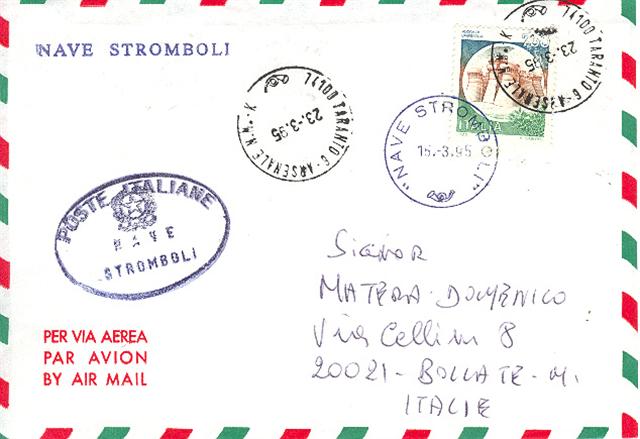 NAVE STROMBOLI
74100 TARANTO 6 - ARSENALE M.M. - K
23.-3.95
74100 TARANTO 6 - ARSENALE M.M. - K
23.-3.95
"NAVE STROMBOLI"
15.-3.95
POSTE ITALIANE
NAVE
STROMBOLI
Signor
MATERA DOMENICO
Via Cellini 8
20021 - BOLLATE - M.
ITALIE
PER VIA AEREA
PAR AVION
BY AIR MAIL